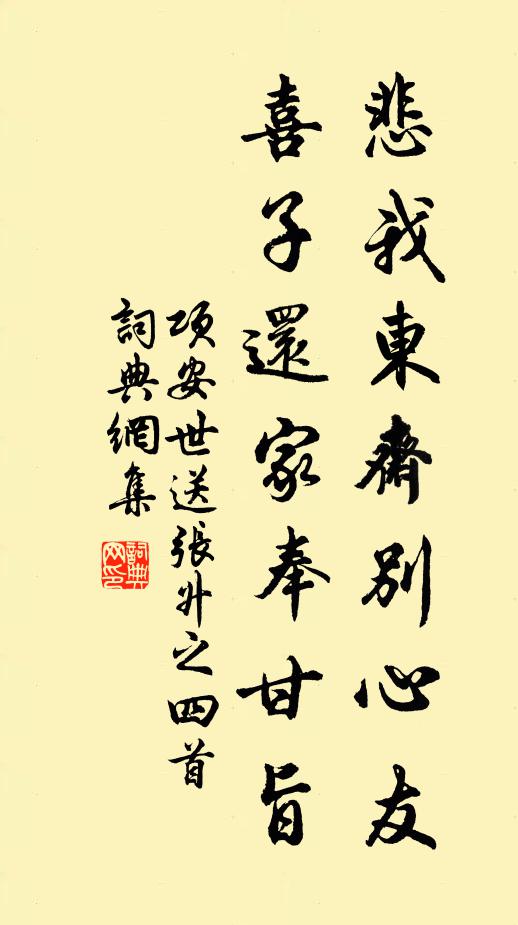 悲我東齋別心友
喜子還家奉甘旨
項安世送張升之四首
詞典網集
詞典網印